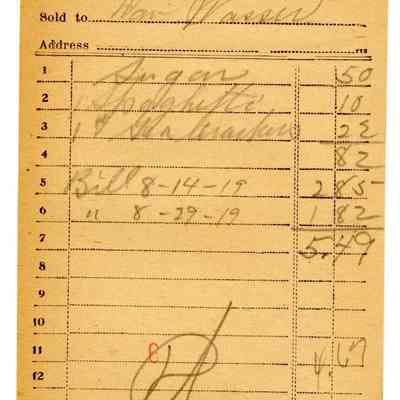 Sold to Wm Wasser
Address
1 Sugar 50
2 1 Spaghetti 10
3 1 # Gra Crackers 22
4 82
5 Bill 8-14-19 2 85
6 " 8-29-19 1 82
7 5.49
8
9
10
11 4.67
12